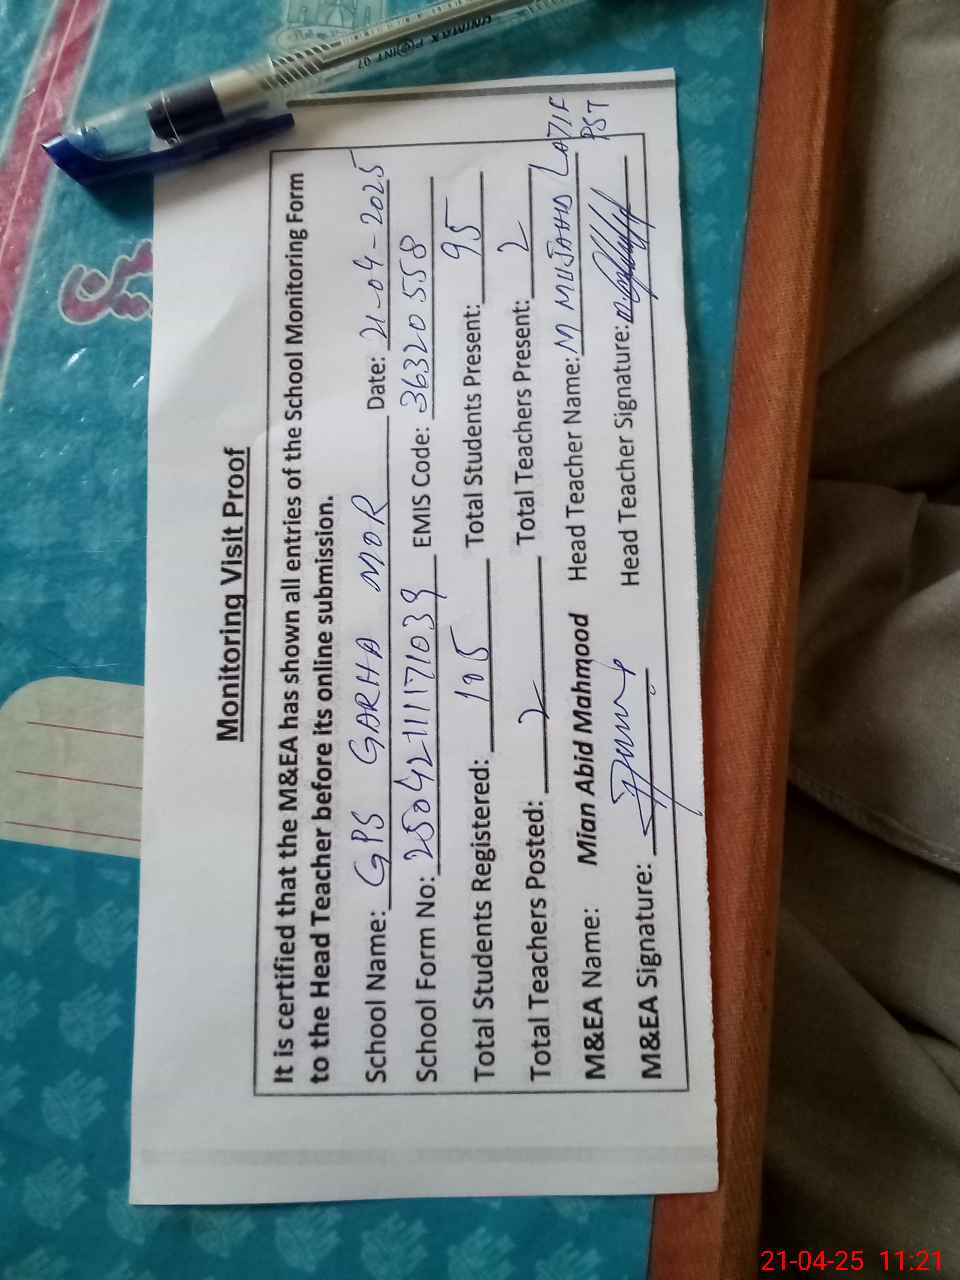 UNIMAX POINT 07
Monitoring Visit Proof
It is certified that the M&EA has shown all entries of the School Monitoring Form
to the Head Teacher before its online submission.
School Name: GPS GARHA MOR Date: 21-04-2025
School Form No: 25042111171039 EMIS Code: 36320558
Total Students Registered: 105 Total Students Present: 95
Total Teachers Posted: 2 Total Teachers Present: 2
M&EA Name: Mian Abid Mahmood Head Teacher Name: M MUJAHID LATIF
PST
M&EA Signature: Head Teacher Signature:
21-04-25 11:21